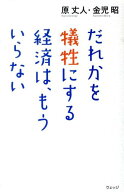 原 丈人・金児 昭
だれかを
犠牲にする
経済は、もう
いらない
ウェッジ